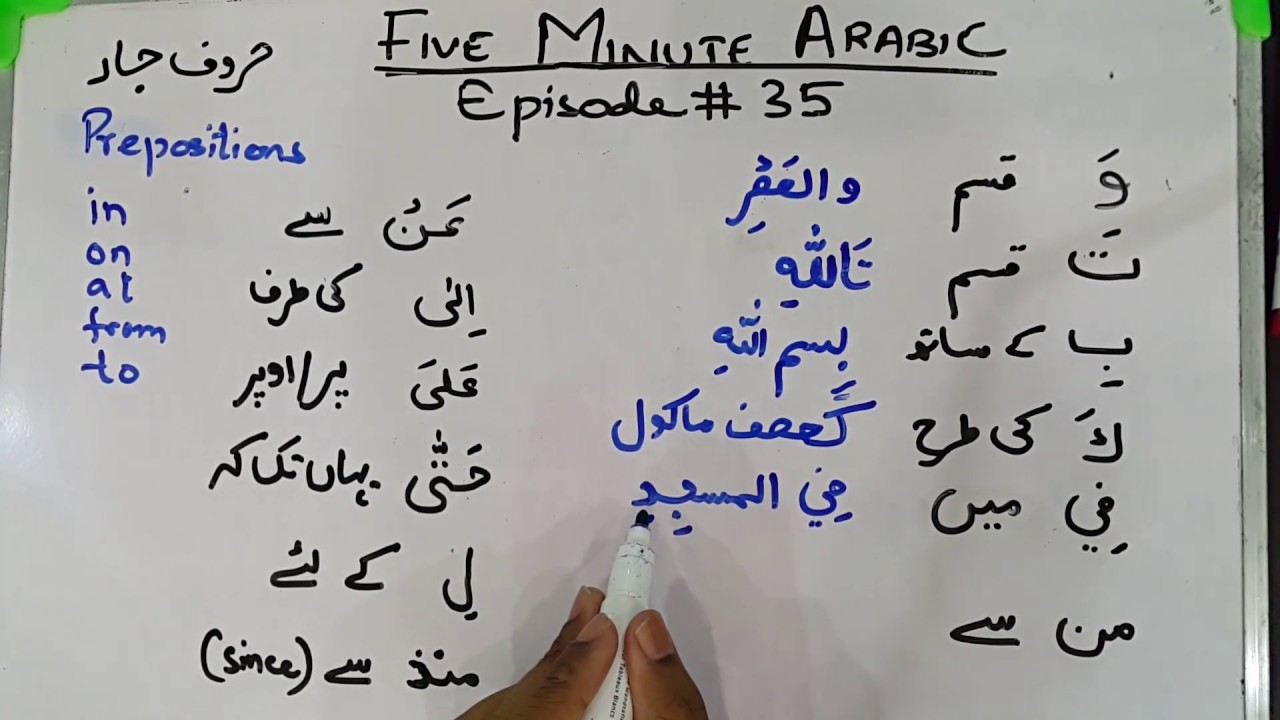 FIVE MINUTE ARABIC
Episode # 35
حروف جار
Prepositions
in
on
at
from
to
وَ قسم
تَ قسم تَاللّٰهِ
بِ کے ساتھ بِسمِ اللّٰهِ
كَ کی طرح كَعصف ماكول
فِي میں فِي المسجِدِ
من سے
عَنْ سے
اِلٰى کی طرف
عَلىَ پر/اوپر
حَتّٰى یہاں تک کہ
لِ کے لئے
منذ سے (since)